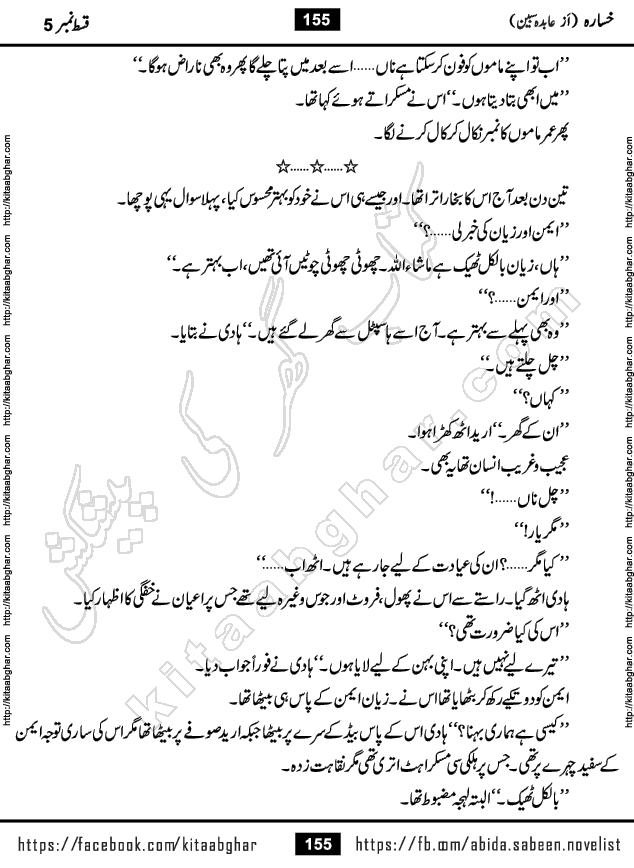 خسارہ (از عابدہ سبین)
155
قسط نمبر 5
’’اب تو اپنے ماموں کو فون کر سکتا ہے ناں......اسے بعد میں پتا چلے گا پھر وہ بھی ناراض ہو گا۔‘‘
’’میں ابھی بتا دیتا ہوں۔‘‘ اس نے مسکراتے ہوئے کہا تھا۔
پھر عمر ماموں کا نمبر نکال کر کال کرنے لگا۔
☆......☆......☆
تین دن بعد آج اس کا بخار اترا تھا۔ اور جیسے ہی اس نے خود کو بہتر محسوس کیا، پہلا سوال یہی پوچھا۔
’’ایمن اور زیان کی خبر لی......؟‘‘
’’ہاں، زیان بالکل ٹھیک ہے ماشاءاللہ۔ چھوٹی چھوٹی چوٹیں آئی تھیں، اب بہتر ہے۔‘‘
’’اور ایمن......؟‘‘
’’وہ بھی پہلے سے بہتر ہے۔ آج اسے ہاسپٹل سے گھر لے گئے ہیں۔‘‘ ہادی نے بتایا۔
’’چل چلتے ہیں۔‘‘
’’کہاں؟‘‘
’’ان کے گھر۔‘‘ ارید اٹھ کھڑا ہوا۔
عجیب و غریب انسان تھا یہ بھی۔
’’چل ناں......!‘‘
’’مگر یار!‘‘
’’کیا مگر......؟ ان کی عیادت کے لیے جا رہے ہیں۔ اٹھ اب......‘‘
ہادی اٹھ گیا۔ راستے سے اس نے پھول، فروٹ اور جوس وغیرہ لیے تھے جس پر اعیان نے خفگی کا اظہار کیا۔
’’اس کی کیا ضرورت تھی؟‘‘
’’تیرے لیے نہیں ہیں۔ اپنی بہن کے لیے لایا ہوں۔‘‘ ہادی نے فوراً جواب دیا۔
ایمن کو دو تکیے رکھ کر بٹھایا تھا اس نے۔ زیان ایمن کے پاس ہی بیٹھا تھا۔
’’کیسی ہے ہماری بہنا؟‘‘ ہادی اس کے پاس بیڈ کے سرے پر بیٹھا جبکہ ارید صوفے پر بیٹھا تھا مگر اس کی ساری توجہ ایمن
کے سفید چہرے پر تھی۔ جس پر ہلکی سی مسکراہٹ اتری تھی مگر نقاہت زدہ۔
’’بالکل ٹھیک۔‘‘ البتہ لہجہ مضبوط تھا۔
کتاب گھر کی پیشکش
kitaabghar.com
http://kitaabghar.com http://kitaabghar.com http://kitaabghar.com http://kitaabghar.com http://kitaabghar.com http://kitaabghar.com
http://kitaabghar.com http://kitaabghar.com http://kitaabghar.com http://kitaabghar.com http://kitaabghar.com http://kitaabghar.com
https://facebook.com/kitaabghar
155
https://fb.com/abida.sabeen.novelist